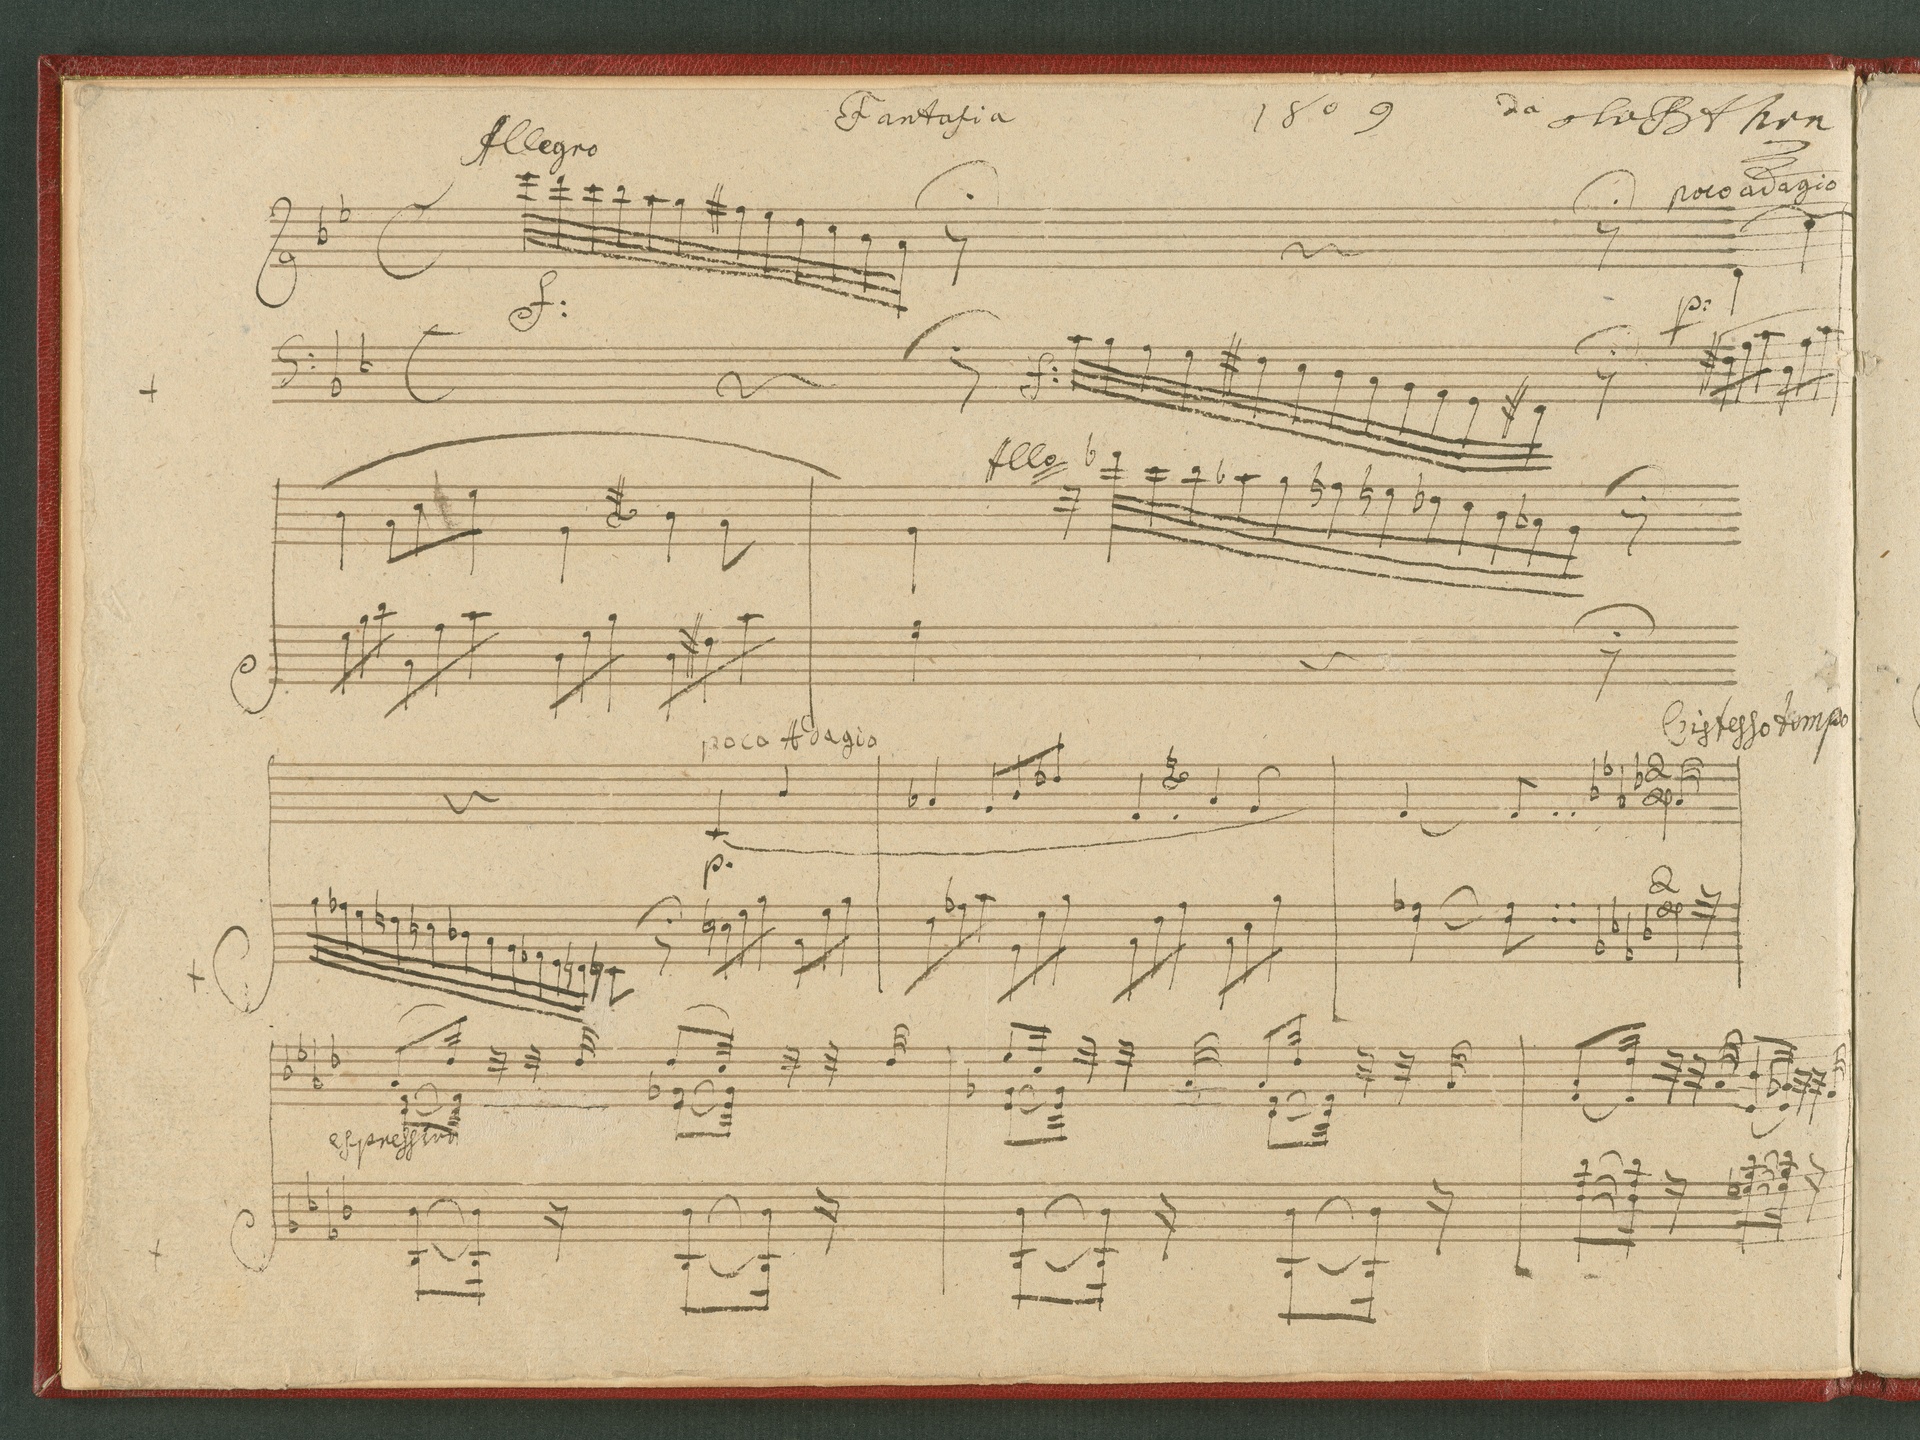 Fantasia 1809 da
Allegro
poco adagio
f:
p:
f:
Allo
poco Adagio
L'istesso tempo
p.
espressivo